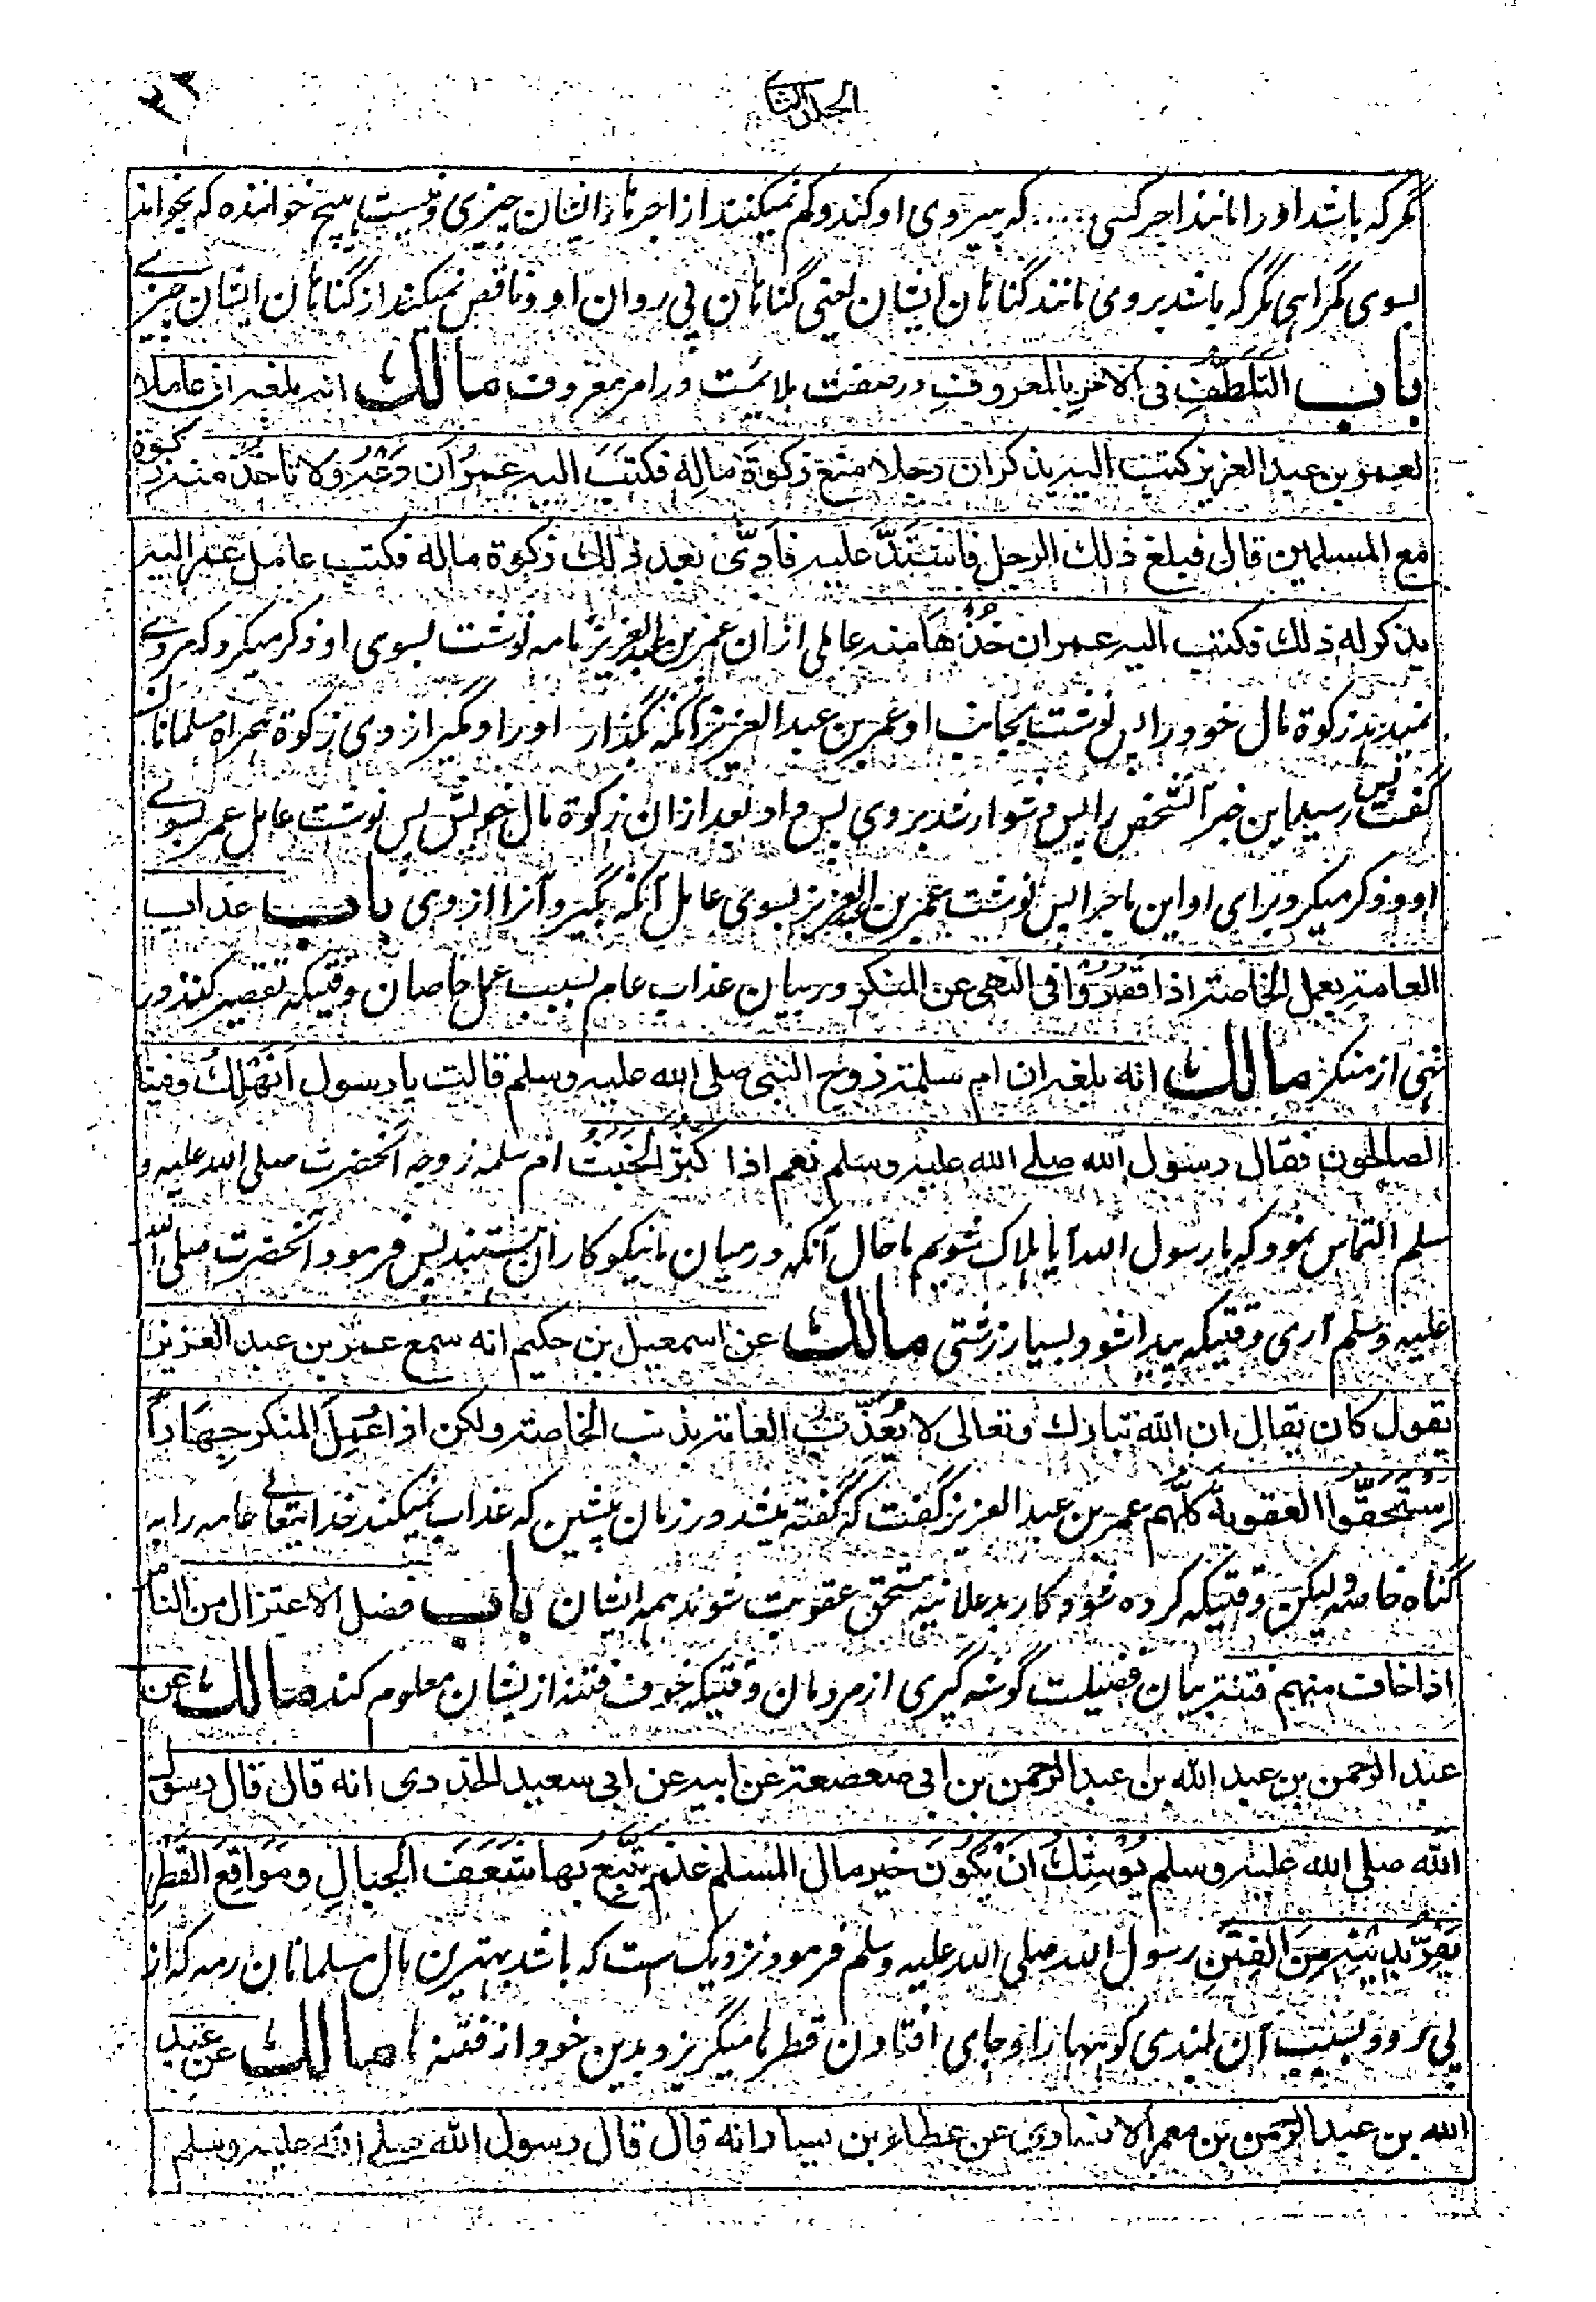 الجلد الثانی
مگر که باشد او را مانند اجر کسی .... که پیروی او کند و کم نمیکنند از اجرهای ایشان چیزی و نیست هیچ خواننده که بخواند
بسوی گمراهی مگر که باشد بروی مانند گناهان ایشان یعنی گناهان پی روان او و ناقص نمیکند از گناهان ایشان چیزے
باب التلطف فی الامر بالمعروف در صفت ملائمت در امر بمعروف مالك انه بلغه ان عاملا
لعمر بن عبد العزیز کتب الیه یذکر ان رجلا منع زکوة ماله فکتب الیه عمر ان دَعْهُ ولا تأخذ منه زکوة
مع المسلمین قال فبلغ ذلك الرجل فاشتدّ علیه فادّی بعد ذلك زکوة ماله فکتب عامل عمر الیه
یذکر له ذلك فکتب الیه عمر ان خُذْهَا منه عاملی از ان عمر بن عبد العزیز نامه نوشت بسوی او ذکر میکرد که مردے
نمیدهد زکوة مال خود را پس نوشت بجانب او عمر بن عبد العزیز آنکه بگذار او را و مگیر از وی زکوة همراه مسلمانان
گفت پس رسید این خبر آنشخص را پس دشوار شد بروی پس داد بعد ازان زکوة مال خویش پس نوشت عامل عمر بسوے
او و ذکر میکرد برای او این ماجرا پس نوشت عمر بن عبد العزیز بسوی عامل آنکه بگیر و آنرا از وی باب عذاب
العامة بعمل الخاصة اذا قصّروا فی النهی عن المنکر در بیان عذاب عام بسبب عمل خاصان وقتیکه تقصیر کنند در
نهی از منکر مالك انه بلغه ان ام سلمة زوج النبی صلی الله علیه وسلم قالت یا رسول انهلك وفینا
الصالحون فقال رسول الله صلے الله علیه وسلم نعم اذا کثر الخبث ام سلمه زوجه آنحضرت صلی الله علیه و
سلم التماس نمود که یا رسول الله آیا هلاک شویم ما حال آنکه در میان ما نیکو کاران هستند پس فرمود آنحضرت صلی الله
علیه وسلم آری وقتیکه پیدا شود بسیار زشتی مالك عن اسمعیل بن حکیم انه سمع عمر بن عبد العزیز
یقول کان یقال ان الله تبارك وتعالی لا یعذّب العامة بذنب الخاصة ولکن اذا عُمِلَ المنکر جِهَارًا
استحقّوا العقوبة کلّهم عمر بن عبد العزیز گفت که گفته میشد در زمان پیشین که عذاب نمیکند خدایتعالے عامه را به
گناه خاصه ولیکن وقتیکه کرده شود کار بد علانیه مستحق عقوبت شوند همه ایشان باب فضل الاعتزال من الناس
اذا خاف منهم فتنة بیان فضیلت گوشه گیری از مردمان وقتیکه خوف فتنه از یشان معلوم کند مالك عن
عبد الرحمن بن عبد الله بن عبد الرحمن بن ابی صعصعة عن ابیه عن ابی سعید الخدری انه قال قال رسول
الله صلی الله علیه وسلم یُوشِكُ اَنْ یَکُونَ خیر مال المسلم غنم یتبع بها شَعَفَ الجبالِ ومَوَاقِعَ القَطْرِ
یَفِرُّ بدینه مِنَ الفِتَنِ رسول الله صلی الله علیه وسلم فرمود نزدیک ست که باشد بهترین مال مسلمانان رمه که از
پی رود بسبب آن بلندی کوهها را و جای افتادن قطرها میگریزد بدین خود از فتنه ها مالك عن عبید
الله بن عبد الرحمن بن معمر الانصاری عن عطاء بن یسار انه قال قال رسول الله صلے الله علیه وسلم